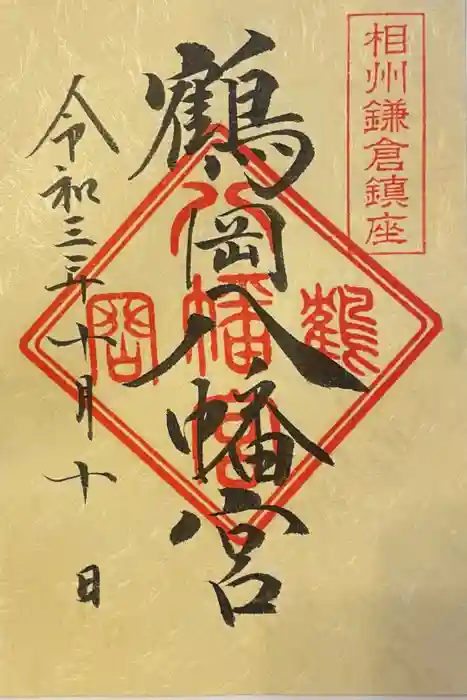 相州鎌倉鎮座
鶴岡八幡宮
鶴
八幡宮
岡
令和三年十月十日